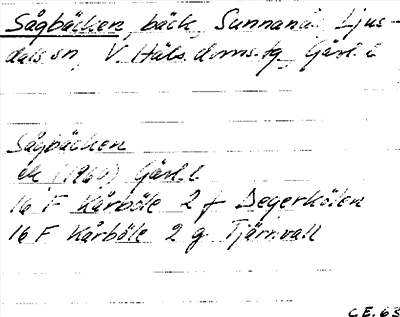 Sågbäcken, bäck, Sunnanå, Ljus-
dals sn, V. Häls. doms. tg, Gävl. l
Sågbäcken
ek (1960) Gävl. l
16 F Kårböle 2 f Degerkölen
16 F Kårböle 2 g Tjärnvall
C E. 63